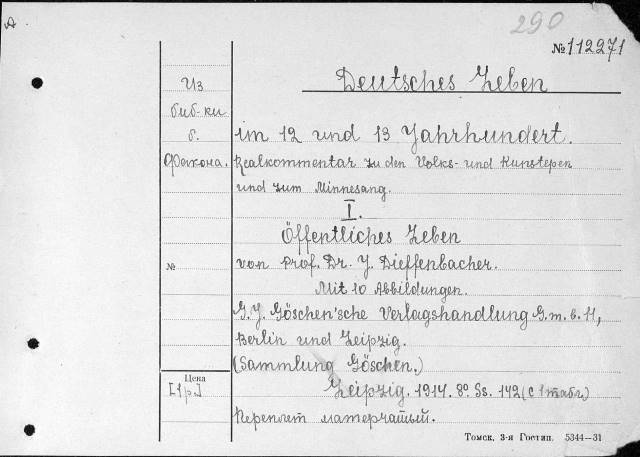 290
№ 112271
Deutsches Leben
Из
биб-ки
б.
im 12 und 13 Jahrhundert.
Realkommentar zu den Volks- und Kunstepen
und zum Minnesang.
I.
Öffentliches Leben
№
von Prof. Dr. J. Dieffenbacher.
Mit 10 Abbildungen.
G. J. Göschen'sche Verlagshandlung G. m. b. H,
Berlin und Leipzig.
(Sammlung Göschen.)
Цена
[1р.]
Leipzig. 1914. 8º. Ss. 142 (с 1 табл)
Переплет матерчатый.
Томск, 3-я Гостип. 5344—31